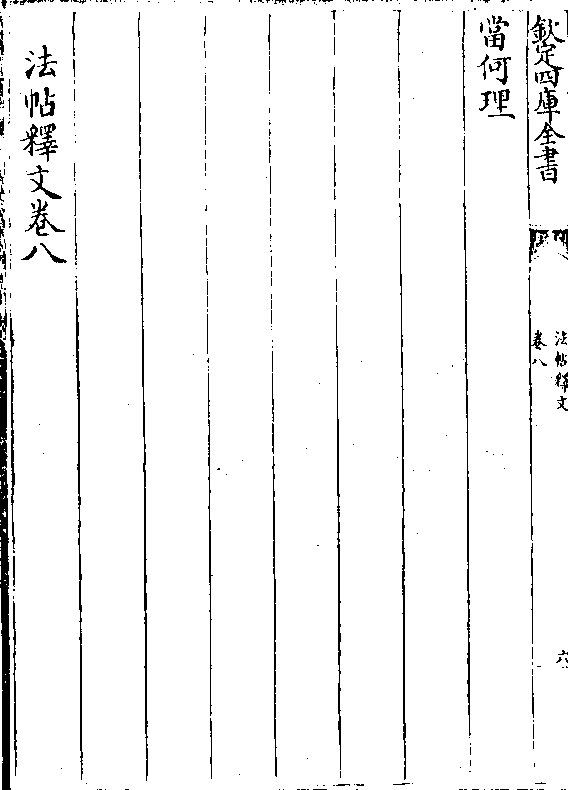 欽定四庫全書
法帖釋文
卷八
六
當何理
法帖釋文卷八